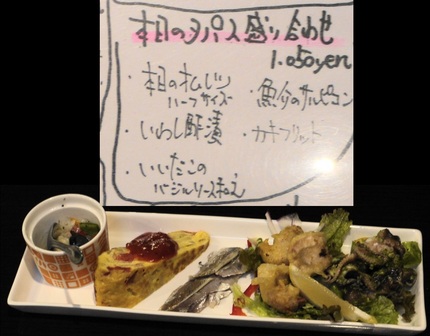 本日のタパス盛り合わせ
1.050yen
・本日のオムレツ
ハーフサイズ
・魚介のサルピコン
・いわし酢漬
・カキフリット
・いいだこの
バージルソース和え